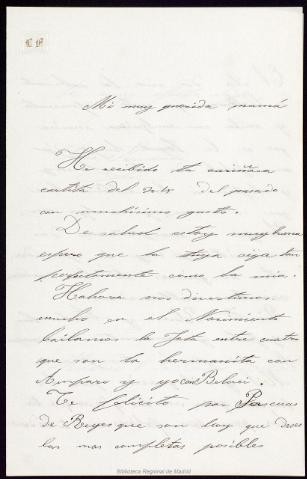 L F
Mi muy querida mamá
He recibido tu cariñosa
cartita del 24 del pasado
con muchísimo gusto.
De salud estoy muy buena
espero que la tuya siga tan
perfectamente como la mia.
Hahora nos divertimos
mucho en el Nacimiento
bailamos la Jota entre cuatro
que son la hermanita con
Amparo y yo con Belusi.
Te felicito por Pascuas
de Reyes que son hoy que desea
las mas completas posibles
Biblioteca Regional de Madrid